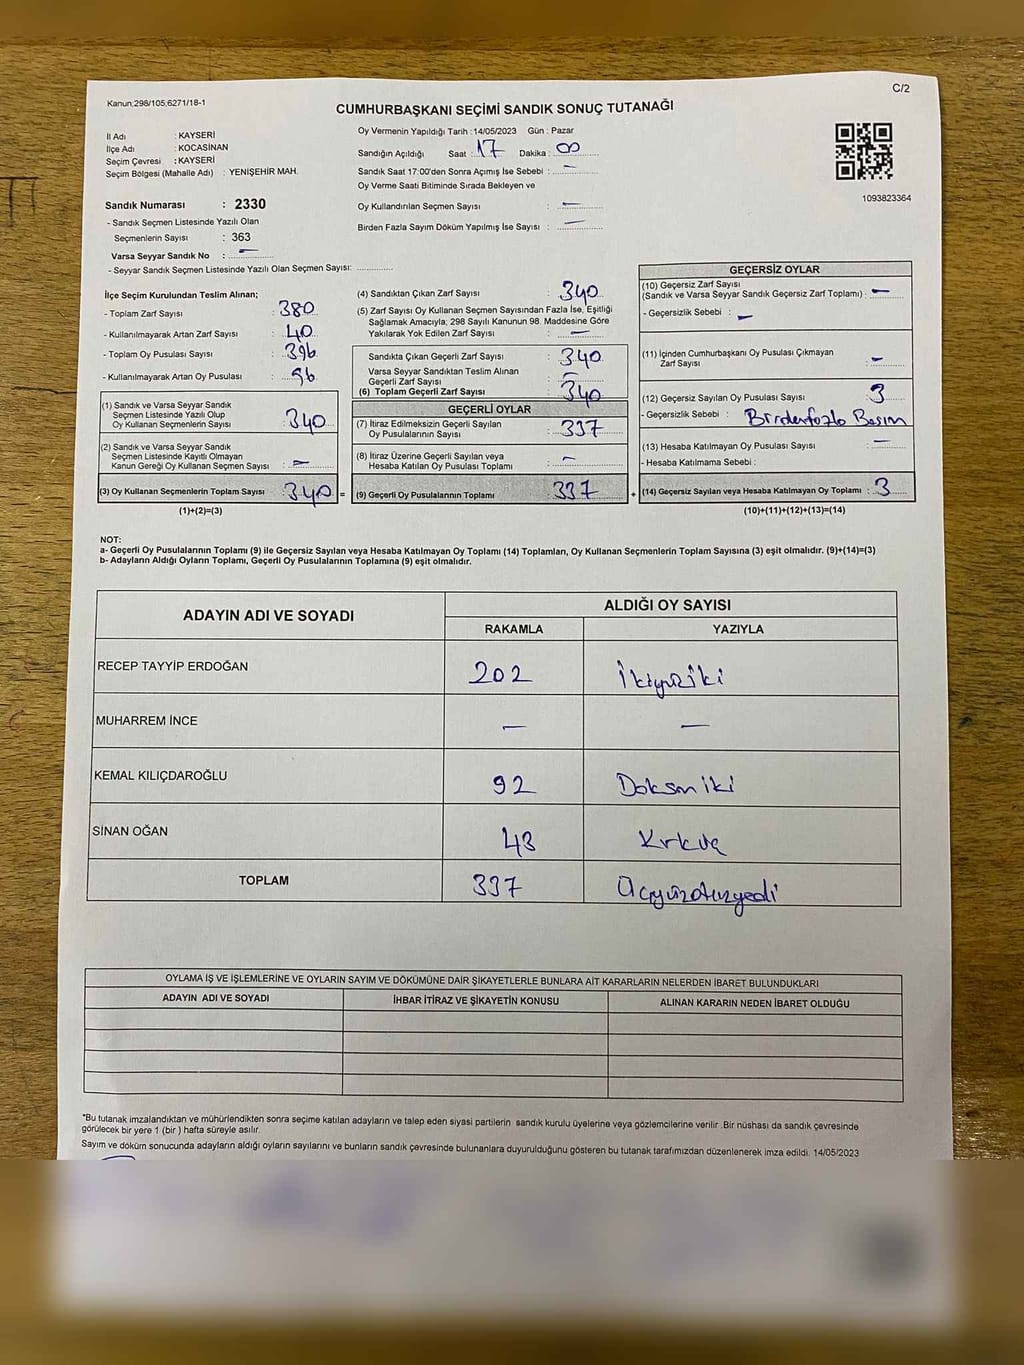 C/2
Kanun:298/105;6271/18-1
CUMHURBAŞKANI SEÇİMİ SANDIK SONUÇ TUTANAĞI
İl Adı : KAYSERİ
İlçe Adı : KOCASİNAN
Seçim Çevresi : KAYSERİ
Seçim Bölgesi (Mahalle Adı) : YENİŞEHİR MAH.
Sandık Numarası : 2330
- Sandık Seçmen Listesinde Yazılı Olan
Seçmenlerin Sayısı : 363
Varsa Seyyar Sandık No : —
- Seyyar Sandık Seçmen Listesinde Yazılı Olan Seçmen Sayısı: ............
Oy Vermenin Yapıldığı Tarih : 14/05/2023 Gün : Pazar
Sandığın Açıldığı Saat : 17 Dakika : 00
Sandık Saat 17:00'den Sonra Açımış İse Sebebi : —
Oy Verme Saati Bitiminde Sırada Bekleyen ve
Oy Kullandırılan Seçmen Sayısı : —
Birden Fazla Sayım Döküm Yapılmış İse Sayısı : —
1093823364
İlçe Seçim Kurulundan Teslim Alınan;
- Toplam Zarf Sayısı : 380
- Kullanılmayarak Artan Zarf Sayısı : 40
- Toplam Oy Pusulası Sayısı : 396
- Kullanılmayarak Artan Oy Pusulası : 96
(1) Sandık ve Varsa Seyyar Sandık
Seçmen Listesinde Yazılı Olup
Oy Kullanan Seçmenlerin Sayısı : 340
(2) Sandık ve Varsa Seyyar Sandık
Seçmen Listesinde Kayıtlı Olmayan
Kanun Gereği Oy Kullanan Seçmen Sayısı : —
(3) Oy Kullanan Seçmenlerin Toplam Sayısı : 340 =
(1)+(2)=(3)
(4) Sandıktan Çıkan Zarf Sayısı : 340
(5) Zarf Sayısı Oy Kullanan Seçmen Sayısından Fazla İse, Eşitliği
Sağlamak Amacıyla; 298 Sayılı Kanunun 98. Maddesine Göre
Yakılarak Yok Edilen Zarf Sayısı : —
Sandıkta Çıkan Geçerli Zarf Sayısı : 340
Varsa Seyyar Sandıktan Teslim Alınan
Geçerli Zarf Sayısı : —
(6) Toplam Geçerli Zarf Sayısı : 340
GEÇERLİ OYLAR
(7) İtiraz Edilmeksizin Geçerli Sayılan
Oy Pusulalarının Sayısı : 337
(8) İtiraz Üzerine Geçerli Sayılan veya
Hesaba Katılan Oy Pusulası Toplamı : —
(9) Geçerli Oy Pusulalarının Toplamı : 337 +
GEÇERSİZ OYLAR
(10) Geçersiz Zarf Sayısı
(Sandık ve Varsa Seyyar Sandık Geçersiz Zarf Toplamı) : —
- Geçersizlik Sebebi : —
(11) İçinden Cumhurbaşkanı Oy Pusulası Çıkmayan
Zarf Sayısı : —
(12) Geçersiz Sayılan Oy Pusulası Sayısı : 3
- Geçersizlik Sebebi : Birdenfazla Basım
(13) Hesaba Katılmayan Oy Pusulası Sayısı : —
- Hesaba Katılmama Sebebi :
(14) Geçersiz Sayılan veya Hesaba Katılmayan Oy Toplamı : 3
(10)+(11)+(12)+(13)=(14)
NOT:
a- Geçerli Oy Pusulalarının Toplamı (9) ile Geçersiz Sayılan veya Hesaba Katılmayan Oy Toplamı (14) Toplamları, Oy Kullanan Seçmenlerin Toplam Sayısına (3) eşit olmalıdır. (9)+(14)=(3)
b- Adayların Aldığı Oyların Toplamı, Geçerli Oy Pusulalarının Toplamına (9) eşit olmalıdır.
ADAYIN ADI VE SOYADI
ALDIĞI OY SAYISI
RAKAMLA YAZIYLA
RECEP TAYYİP ERDOĞAN 202 İkiyüziki
MUHARREM İNCE — —
KEMAL KILIÇDAROĞLU 92 Doksaniki
SİNAN OĞAN 43 Kırküç
TOPLAM 337 Üçyüzotuzyedi
OYLAMA İŞ VE İŞLEMLERİNE VE OYLARIN SAYIM VE DÖKÜMÜNE DAİR ŞİKAYETLERLE BUNLARA AİT KARARLARIN NELERDEN İBARET BULUNDUKLARI
ADAYIN ADI VE SOYADI İHBAR İTİRAZ VE ŞİKAYETİN KONUSU ALINAN KARARIN NEDEN İBARET OLDUĞU
*Bu tutanak imzalandıktan ve mühürlendikten sonra seçime katılan adayların ve talep eden siyasi partilerin sandık kurulu üyelerine veya gözlemcilerine verilir .Bir nüshası da sandık çevresinde
görülecek bir yere 1 (bir ) hafta süreyle asılır.
Sayım ve döküm sonucunda adayların aldığı oyların sayılarını ve bunların sandık çevresinde bulunanlara duyurulduğunu gösteren bu tutanak tarafımızdan düzenlenerek imza edildi. 14/05/2023